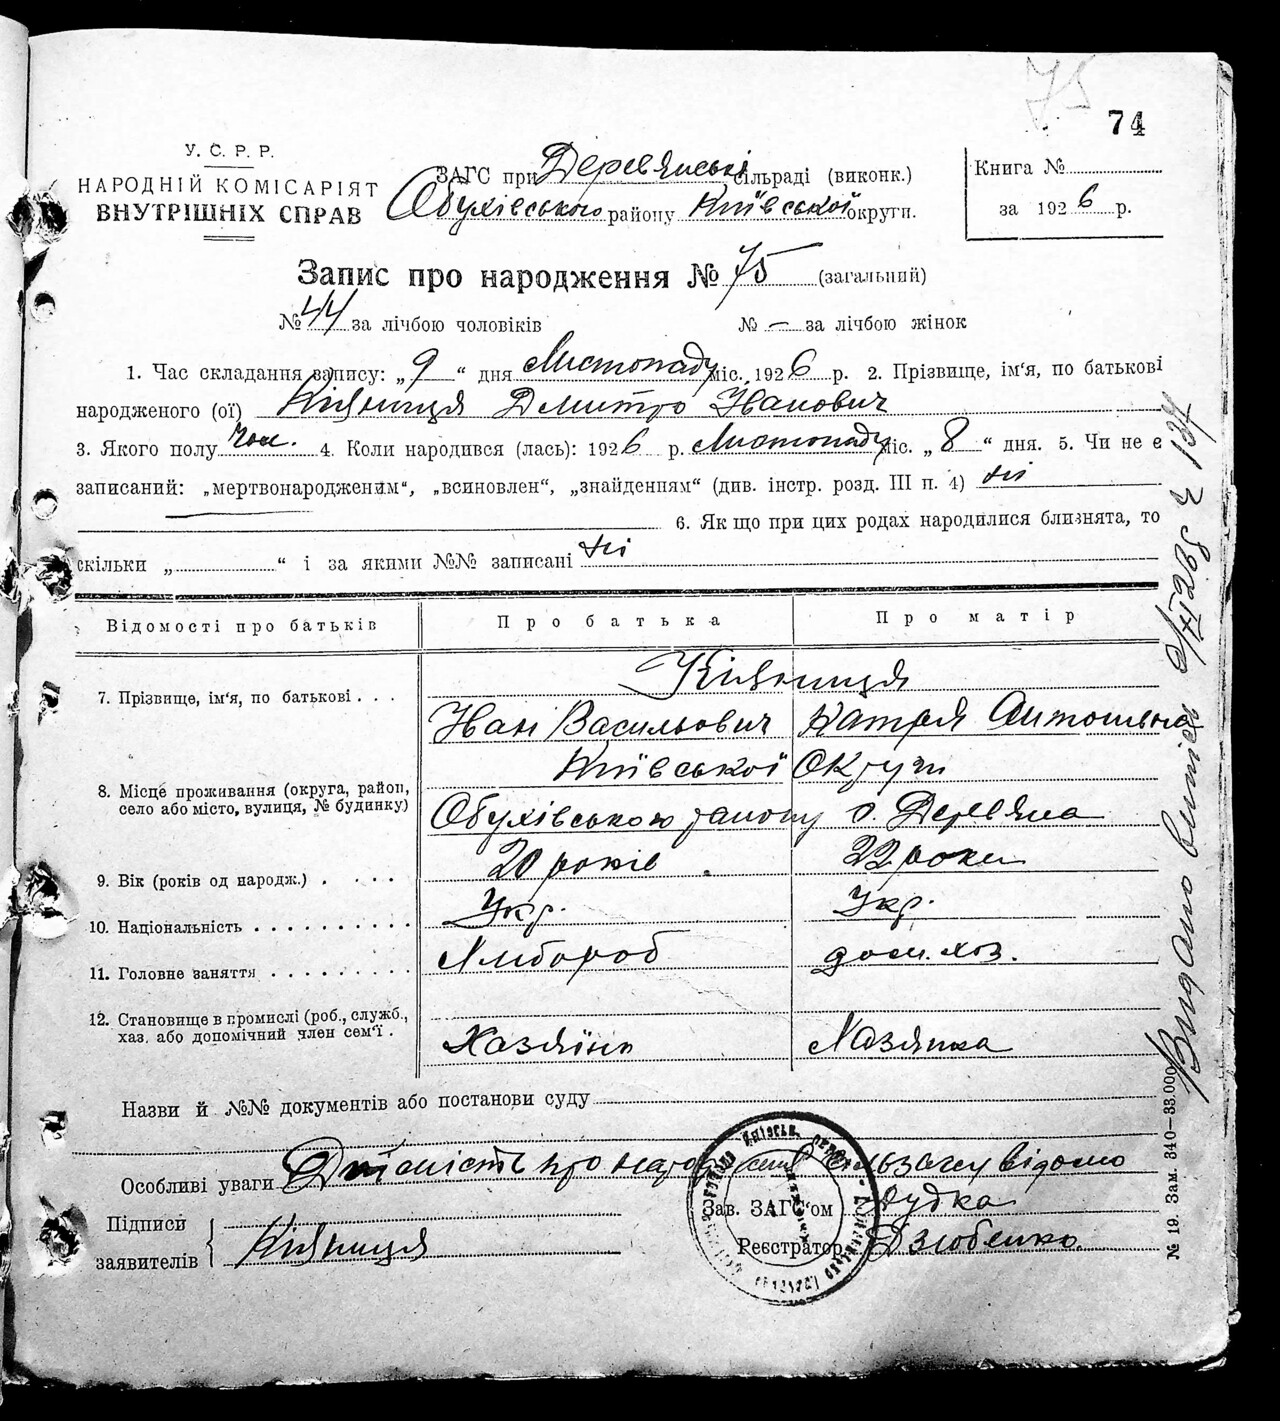 75
74
У. С. Р. Р.
НАРОДНІЙ КОМІСАРІЯТ
ВНУТРІШНІХ СПРАВ
ЗАГС при Деревянські сільраді (виконк.)
Обухівського району Київської округи.
Книга №
за 1926 р.
Запис про народження № 75 (загальний)
№ 44 за лічбою чоловіків № — за лічбою жінок
1. Час складання запису: „9“ дня Листопаду міс. 1926 р. 2. Прізвище, ім'я, по батькові
народженого (ої) Кияниця Дмитро Іванович
3. Якого полу чол. 4. Коли народився (лась): 1926 р. Листопаду міс. „8“ дня. 5. Чи не є
записаний: „мертвонародженим“, „всиновлен“, „знайденням“ (див. інстр. розд. III п. 4) ні
6. Якщо при цих родах народилися близнята, то
скільки „ “ і за якими №№ записані ні
Відомості про батьків Про батька Про матір
Кияниця
7. Прізвище, ім'я, по батькові . . .
Іван Васильович Катря Антоновна
Київської Округи
8. Місце проживання (округа, район,
село або місто, вулиця, № будинку)
Обухівського району с. Деревяна
9. Вік (років од народж.) . . . . 20 років 22 роки
10. Національність . . . . . . . . . . Укр. Укр.
11. Головне заняття . . . . . . . . . Хлібороб дом. хоз.
12. Становище в промислі (роб., служб.,
хаз. або допомічний член сем'ї .
Хазяїн Хазяйка
Назви й №№ документів або постанови суду
Особливі уваги Дійсність про народження сільраді відомо
Підписи
заявителів
Кияниця
Зав. ЗАГС'ом Дудка
Реєстратор Дзюбенко
№ 19. Зам. 340—33.000
Видано виписъ